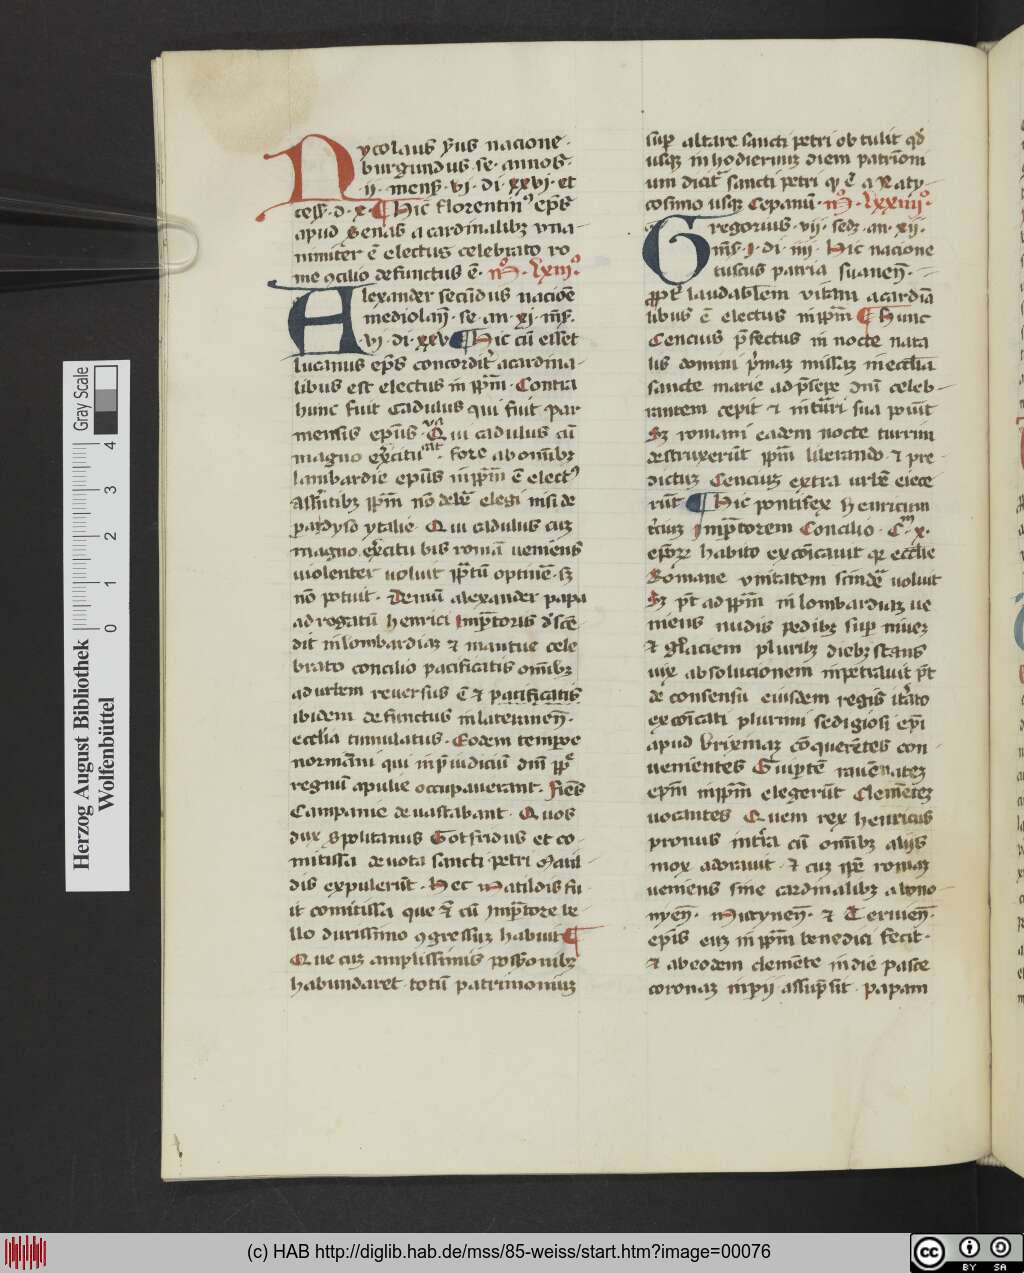 Nycolaus ijus nacione
burgundus se· annos·
ij· mens̄· vj· di· xxvj· et
cess̄· d· x· ¶ Hic florentin9 ep̄s
apud Senas a cardinalibꝫ vna-
nimiter ē electus celebrato ro
me ↄcilio defunctus ē· M°· lxiij°·
Alexander secūdus nacōe
mediolan̄· se· an· xj· mn̄s·
vj· di· xxv ¶ Hic cū esset
lucanus ep̄s concordit̄ acardina-
libus est electus in pp̄m· Contra
hunc fuit Cadulus qui fuit par
mensis ep̄us· Qui cadulus cū
magno ex̄citu· fore ab om̄ibꝫ
lambardie ep̄us in pp̄m ē elect9
Ass̄ntibꝫ pp̄m nō debē elegi nisi de
paradyso ytalie· Qui cadulus cuꝫ
magno ex̄citu bis romā ueniens
violenter uoluit pp̄tū optinē· sꝫ
nō potuit· Demū alexander papa
ad rogatū henrici Imp̄toris dn̄scē
dit in lombardiaꝫ ⁊ mantue cele
brato concilio pacificatis om̄ibꝫ
ad urbem reuersus ē ⁊ pacificatis
ibidem defunctus in lateranen̄·
ecclia tumulatus· Eodem tempoe
normāni qui in p̄iudiciū dn̄i pp̄
regnū apulie occupauerant· fiēs
Campanie deuastabant· Quos
dux Spolitanus Gotfridus et co-
mitissa deuota sancti petri Matil-
dis expulerūt· Hec Matildis fu-
it comitissa que ⁊ cū Imp̄tore be-
llo durissimo ↄgressuꝫ habuit ¶
Que cuꝫ amplissimis poss̄onibꝫ
habundaret totū patrimoniuꝫ
sup̄ altare sancti petri obtulit qd̄
usqꝫ in hodiernuꝫ diem patriōni
um dicit̄ sancti petri qͥ ē a Raty-
cofimo usqꝫ Cepanū· M°· lxxiiij°·
Gregorius· vij· sedꝫ· an· xij·
mn̄s· I· di· iiij· Hic nacione
tuscus patria suanen̄·
pp̄t̄ laudabīlem vitam acardīa
libus ē electus in pp̄m ¶ Hunc
Cencius p̄fectus in nocte nata
lis domini p̄maꝫ missaꝫ in ecclīa
sancte marie ad p̄sepe dn̄i celeb-
rantem cepit ⁊ in tūri sua poūit
Sꝫ romani eadem nocte turrim
destruxerūt pp̄m liberando· ⁊ pre-
dictuꝫ Cenciuꝫ extra urbē eiece
rūt ¶ Hic pontifex henricum
t̄ciuꝫ Imp̄torem Concilio· Cᵐ· x·
ep̄orꝫ habito excōicauit qꝛ ecclīe
Romane vnitatem scindē uoluit
Sꝫ p̄t ad pp̄m in lombardiaꝫ ue
niens nudis pedibꝫ sup̄ niueꝫ
⁊ glaciem pluribꝫ diebꝫ stans
uix absolucionem inpetrauit p̄t
de consensu eiusdem regis it̄ato
excōicati plurimi sedigiosi ep̄i
apud brixinaꝫ cōquerētes con-
uenientes Gwip̄tē rauēnateꝫ
ep̄m in pp̄m elegerūt Clemēteꝫ
uocantes Quem rex henricus
pronus infra cū om̄ibꝫ alijs
mox adorauit· ⁊ cuꝫ ip̄e romaꝫ
ueniens sine cardinalibꝫ a bono-
nyen̄· Mutynen̄· ⁊ Ceruien̄·
ep̄is euꝫ in pp̄m benedici fecit·
⁊ ab eodem clemēte in die pasce
coronaꝫ inp̄ij assūpsit· papam
Herzog August Bibliothek
Wolfenbüttel
0 1 2 3 4
Gray Scale
(c) HAB http://diglib.hab.de/mss/85-weiss/start.htm?image=00076
cc BY SA